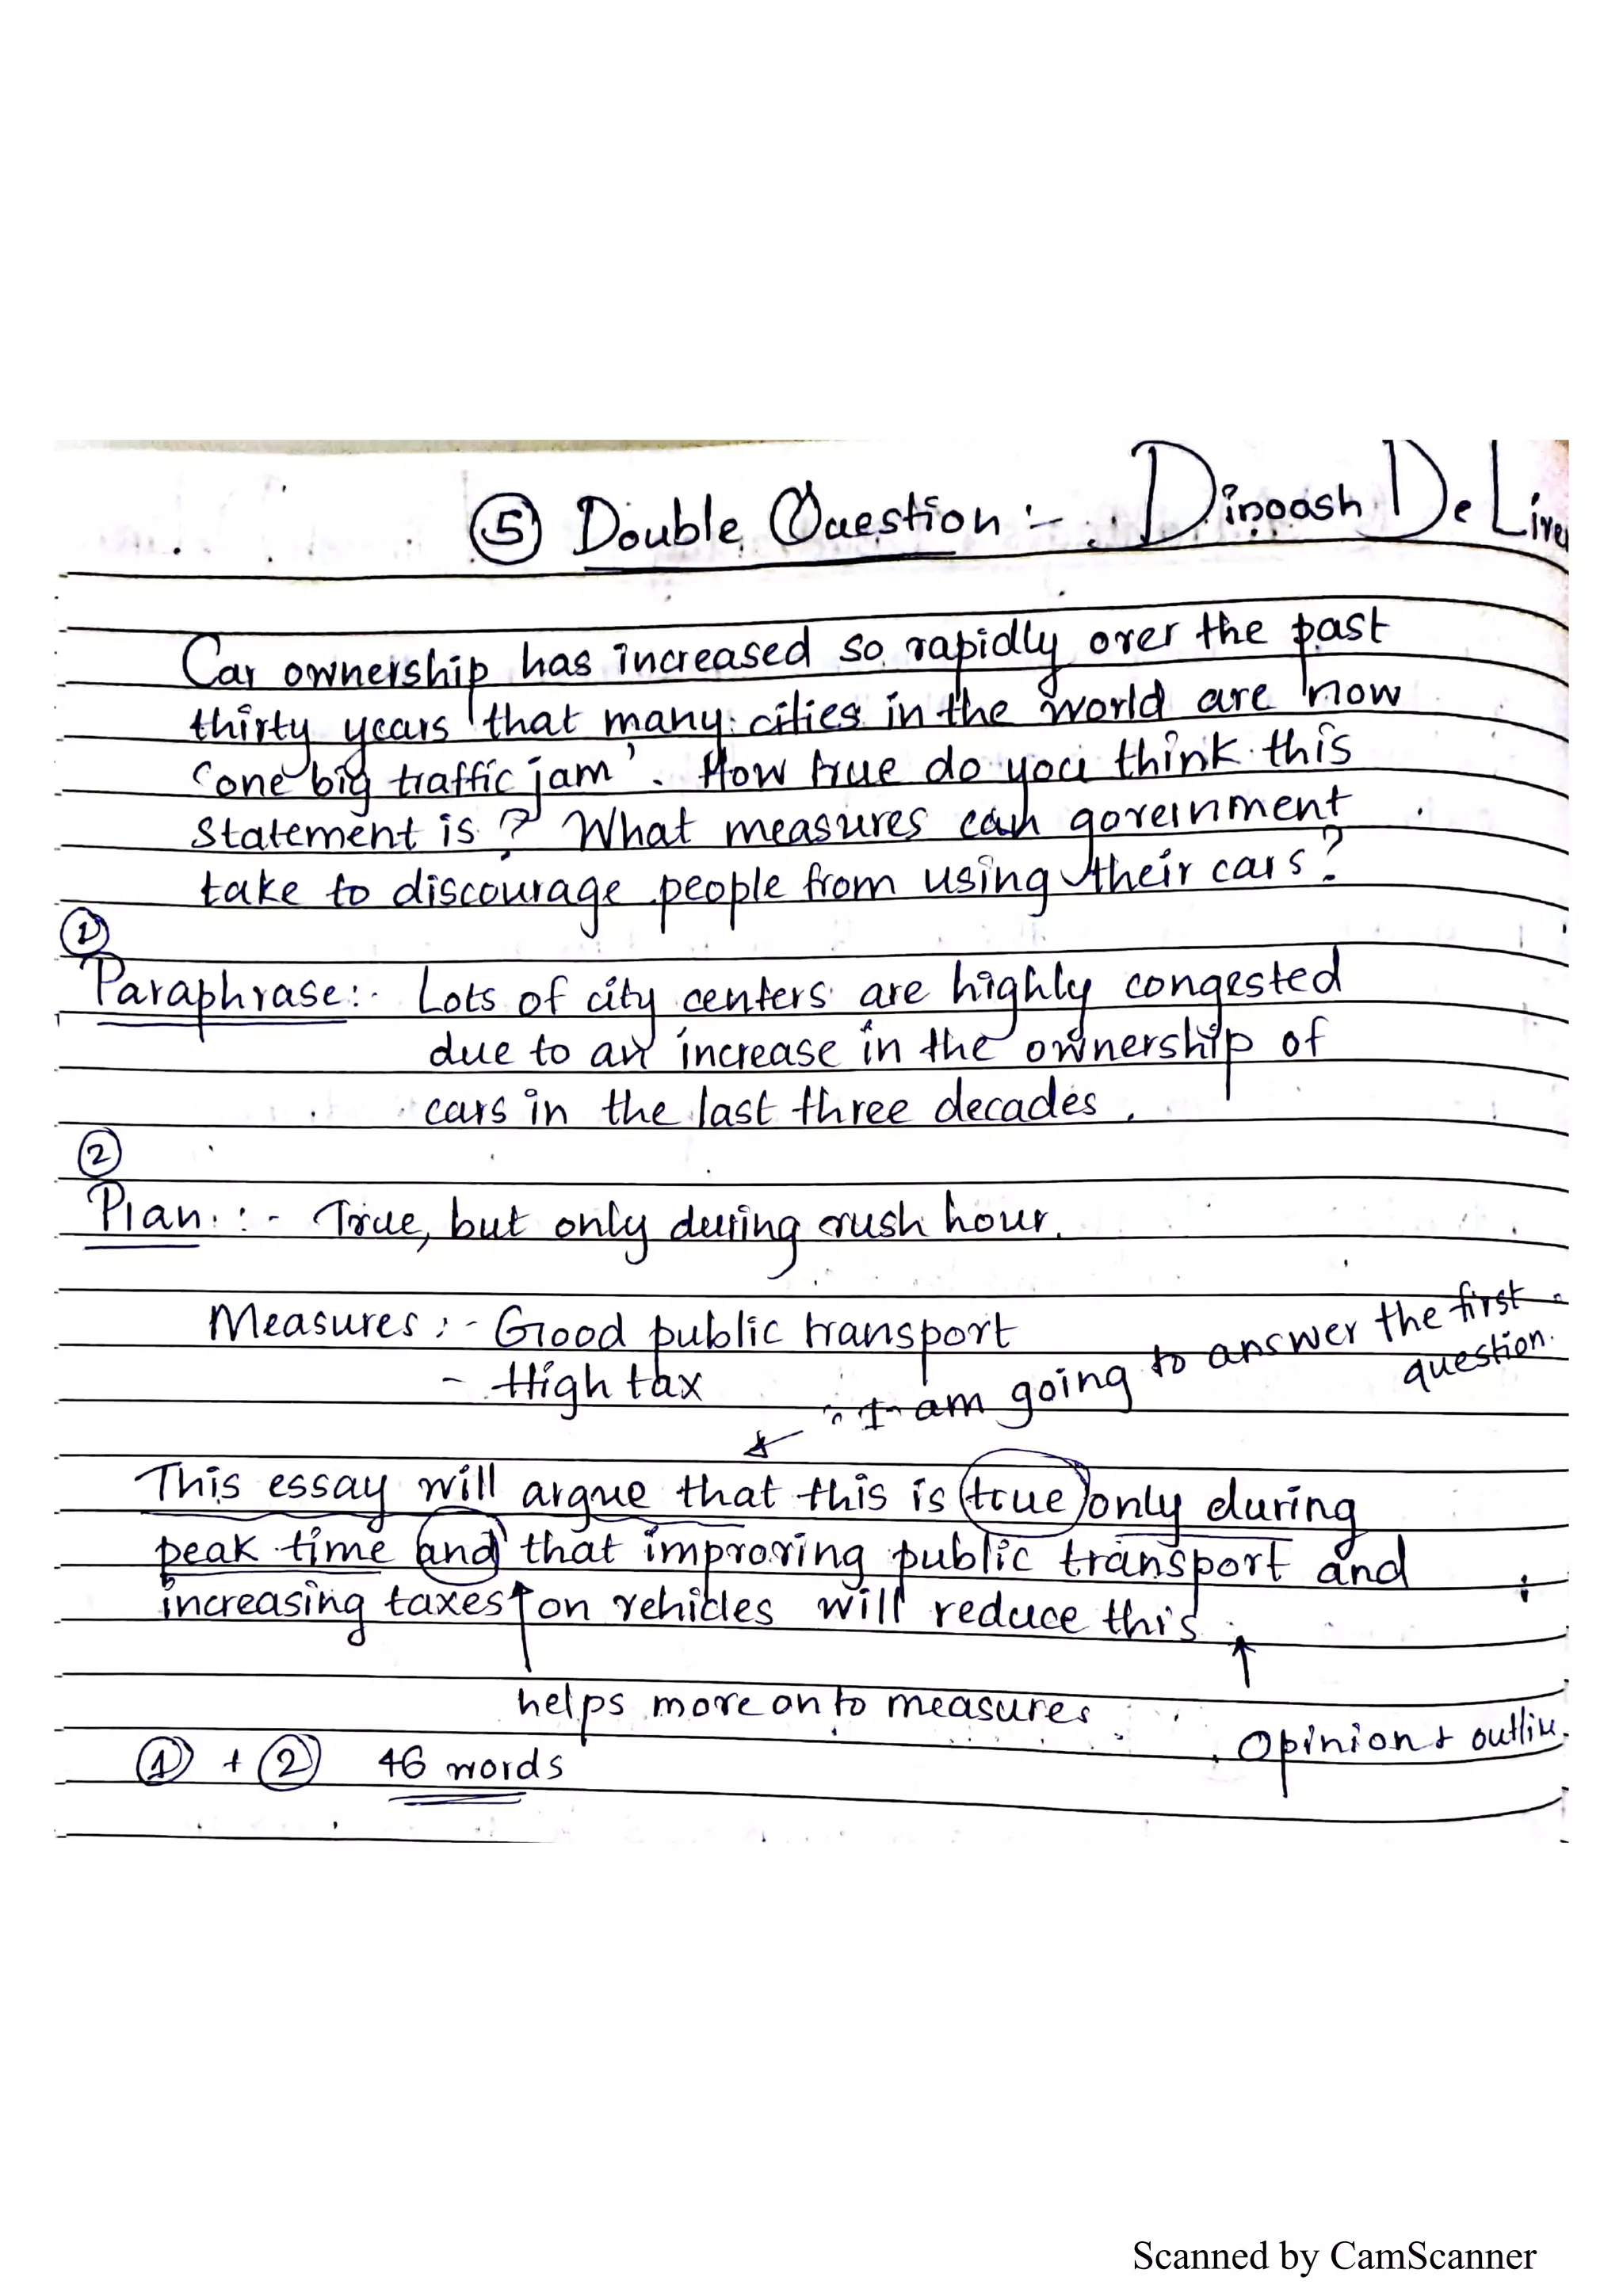 ⑤ Double Question :- Dinoosh De Live
Car ownership has increased so rapidly over the past
thirty years that many cities in the world are now
'one big traffic jam'. How true do you think this
statement is? What measures can government
take to discourage people from using their cars?
①
Paraphrase:- Lots of city centers are highly congested
due to an increase in the ownership of
cars in the last three decades.
②
Plan :- True, but only during rush hour.
Measures :- Good public transport
- High tax
I am going to answer the first
question.
This essay will argue that this is true only during
peak time and that improving public transport and
increasing taxes on vehicles will reduce this
helps more on to measures
Opinion + outline
① + ② 46 words
Scanned by CamScanner